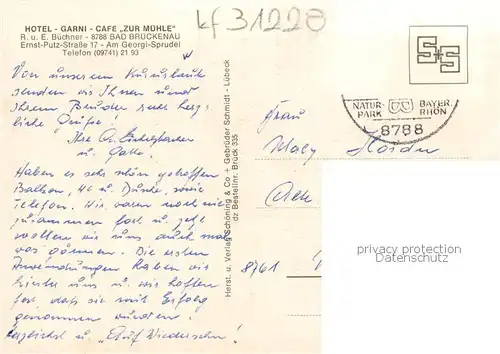 HOTEL - GARNI - CAFE „ZUR MÜHLE"
R. u. E. Büchner - 8788 BAD BRÜCKENAU
Ernst-Putz-Straße 17 - Am Georgi-Sprudel
Telefon (09741) 21 93
kf 31228
Von unserem Kurzurlaub
senden wir Ihnen und
Ihrem Bruder sehr herz-
liche Grüße!
Ihre
u. Gatte.
Haben es sehr schön getroffen
Balkon, WC u. Dusche, sowie
Telefon. Wir waren noch nie
zusammen fort u. jetzt
wollten wir uns auch mal
was gönnen. Die ersten
Anwendungen haben wir
hinter uns u. wir hoffen
fest, daß sie mit Erfolg
genommen wurden!
Herzlichst u. „Auf Wiedersehn!
Herst. u. Verlag Schöning & Co + Gebrüder Schmidt - Lübeck
dz Bestellnr. Brück 335
S+S
NATUR-PARK BAYER. RHÖN
8788
Frau
8761
privacy protection
Datenschutz